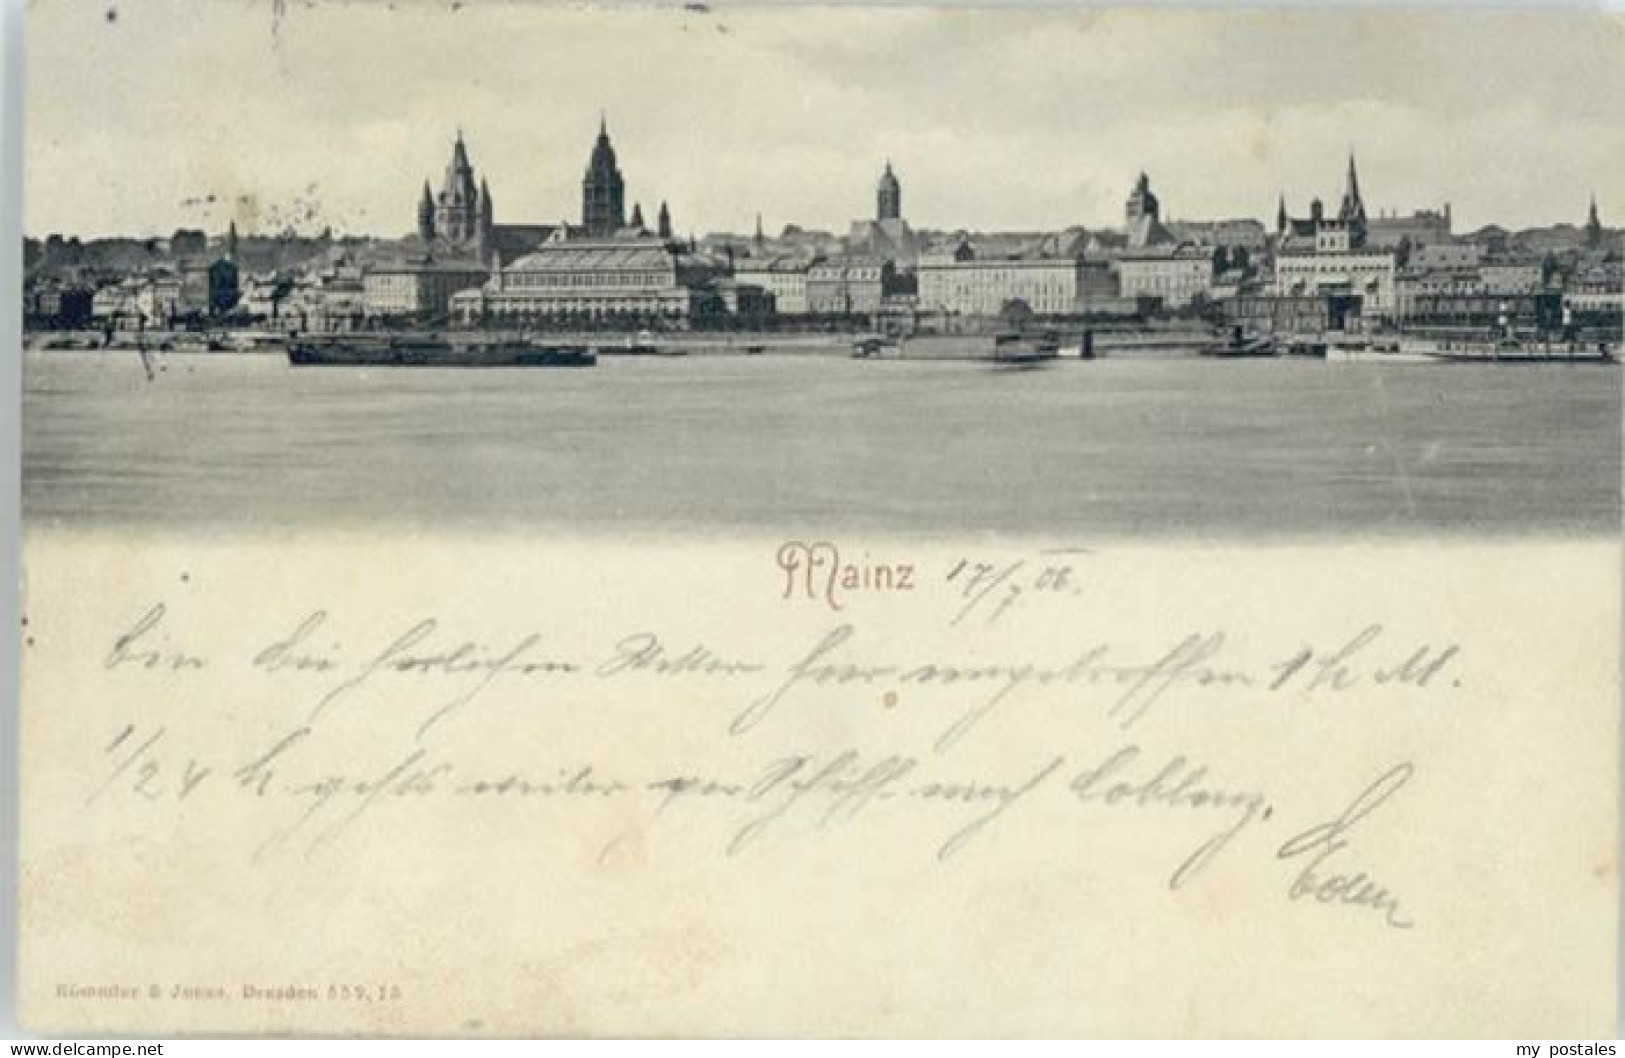 Mainz 17/7 06.
bin bei herlichem Wetter hier eingetroffen 1 h M.
1/2 4 h gehts weiter per Schiff nach Coblenz.
Römmler & Jonas, Dresden 559,13
www.delcampe.net
my_postales